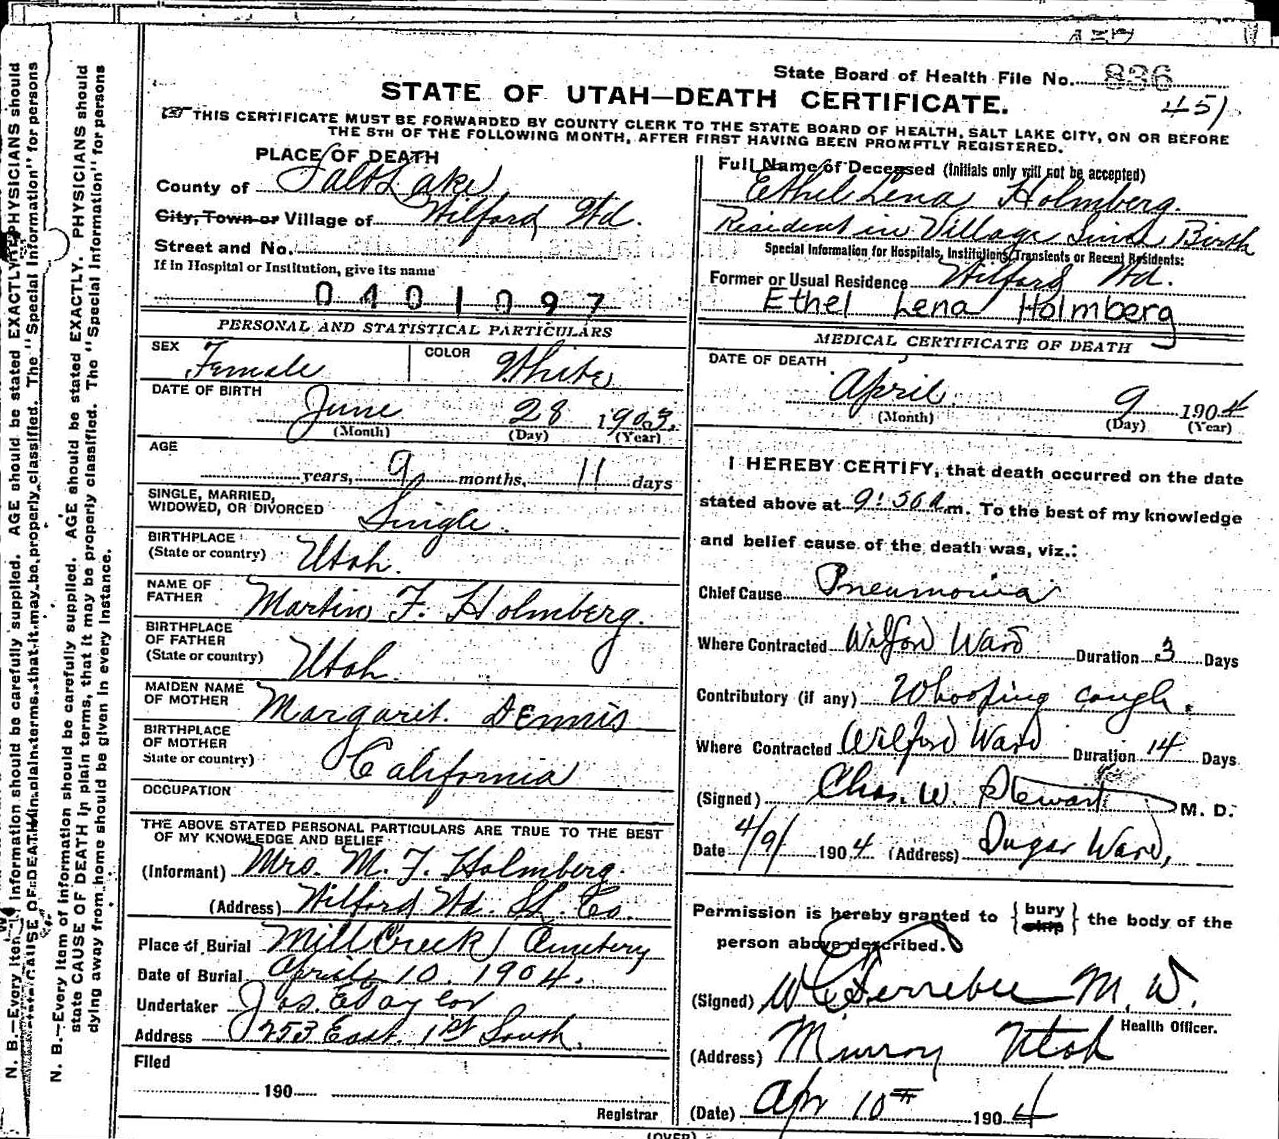 State Board of Health File No. 836
451
STATE OF UTAH—DEATH CERTIFICATE.
THIS CERTIFICATE MUST BE FORWARDED BY COUNTY CLERK TO THE STATE BOARD OF HEALTH, SALT LAKE CITY, ON OR BEFORE
THE 5TH OF THE FOLLOWING MONTH, AFTER FIRST HAVING BEEN PROMPTLY REGISTERED.
PLACE OF DEATH
County of Salt Lake
City, Town or Village of Wilford Wd.
Street and No.
If in Hospital or Institution, give its name
0401097
PERSONAL AND STATISTICAL PARTICULARS
SEX Female COLOR White
DATE OF BIRTH
June 28 1903.
(Month) (Day) (Year)
AGE
years, 9 months, 11 days
SINGLE, MARRIED,
WIDOWED, OR DIVORCED Single.
BIRTHPLACE
(State or country) Utah.
NAME OF
FATHER Martin F. Holmberg.
BIRTHPLACE
OF FATHER
(State or country) Utah.
MAIDEN NAME
OF MOTHER Margaret Dennis
BIRTHPLACE
OF MOTHER
State or country) California
OCCUPATION
THE ABOVE STATED PERSONAL PARTICULARS ARE TRUE TO THE BEST
OF MY KNOWLEDGE AND BELIEF
(Informant) Mrs. M. F. Holmberg.
(Address) Wilford Wd. S.L. Co.
Place of Burial Mill Creek Cemetery
Date of Burial April 10, 1904.
Undertaker Jos. E Taylor
Address 253 East 1st South.
Filed
190
Registrar
Full Name of Deceased (Initials only will not be accepted)
Ethel Lena Holmberg.
Resident in Village Since Birth
Special Information for Hospitals, Institutions, Transients or Recent Residents:
Former or Usual Residence Wilford Wd.
Ethel Lena Holmberg
MEDICAL CERTIFICATE OF DEATH
DATE OF DEATH
April 9 1904
(Month) (Day) (Year)
I HEREBY CERTIFY, that death occurred on the date
stated above at 9:50 a.m. To the best of my knowledge
and belief cause of the death was, viz.:
Chief Cause Pneumonia
Where Contracted Wilford Ward Duration 3 Days
Contributory (if any) Whooping cough.
Where Contracted Wilford Ward Duration 14 Days
(Signed) Chas. W. Stewart M. D.
Date 4/9/ 1904 (Address) Sugar Ward,
Permission is hereby granted to {bury ship} the body of the
person above described.
(Signed) W C Ferrebee M. D.
Health Officer.
(Address) Murray Utah
(Date) Apr 10th 1904
(OVER)
N. B.—Every item of information should be carefully supplied. AGE should be stated EXACTLY. PHYSICIANS should
state CAUSE OF DEATH in plain terms, that it may be properly classified. The "Special Information" for persons
N. B.—Every item of information should be carefully supplied. AGE should be stated EXACTLY. PHYSICIANS should
state CAUSE OF DEATH in plain terms, that it may be properly classified. The "Special Information" for persons
dying away from home should be given in every instance.